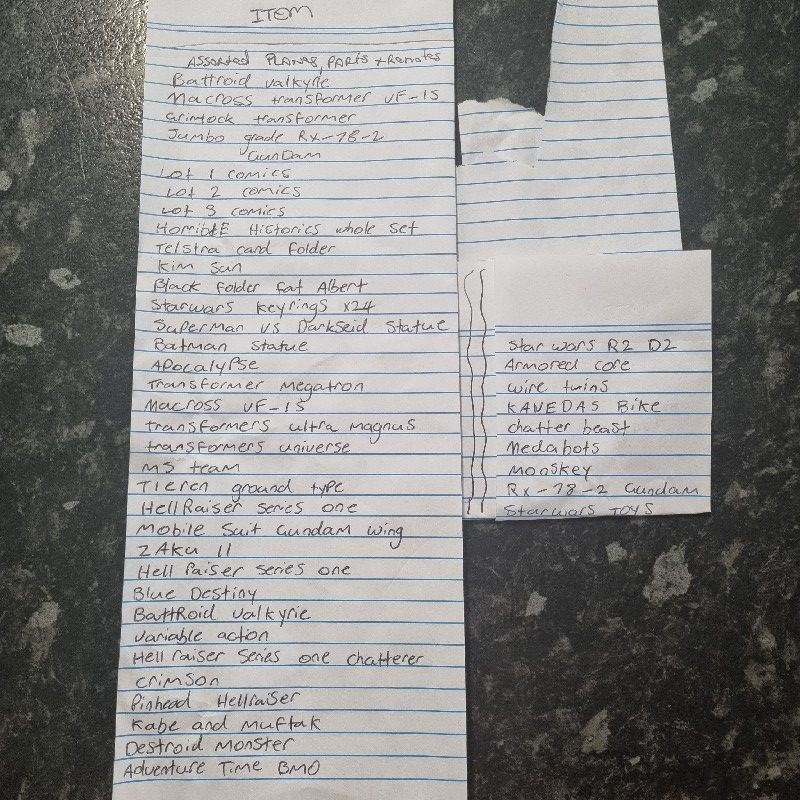 ITEM
Assorted PLANES, PARTS + Remotes
Battroid Valkyrie
Macross transformer VF-1S
Grimlock transformer
Jumbo grade RX-78-2
Gundam
Lot 1 comics
Lot 2 comics
Lot 3 comics
HorriblE Histories whole set
Telstra card folder
Kim Sun
Black folder fat Albert
Starwars Keyrings x24
Superman VS Darkseid Statue
Batman Statue
Apocalypse
Transformer Megatron
Macross VF-1S
transformers ultra magnus
transformers universe
MS team
Tieren ground type
HellRaiser series one
Mobile Suit Gundam wing
ZAKU II
Hell raiser series one
Blue Destiny
BattRoid Valkyrie
Variable action
Hell raiser series one chatterer
crimson
Pinhead Hellraiser
Kabe and Muftak
Destroid Monster
Adventure Time BMO
Star wars R2 D2
Armored core
wire twins
KANEDAS Bike
chatter beast
Medabots
Monskey
RX-78-2 Gundam
Starwars TOYS